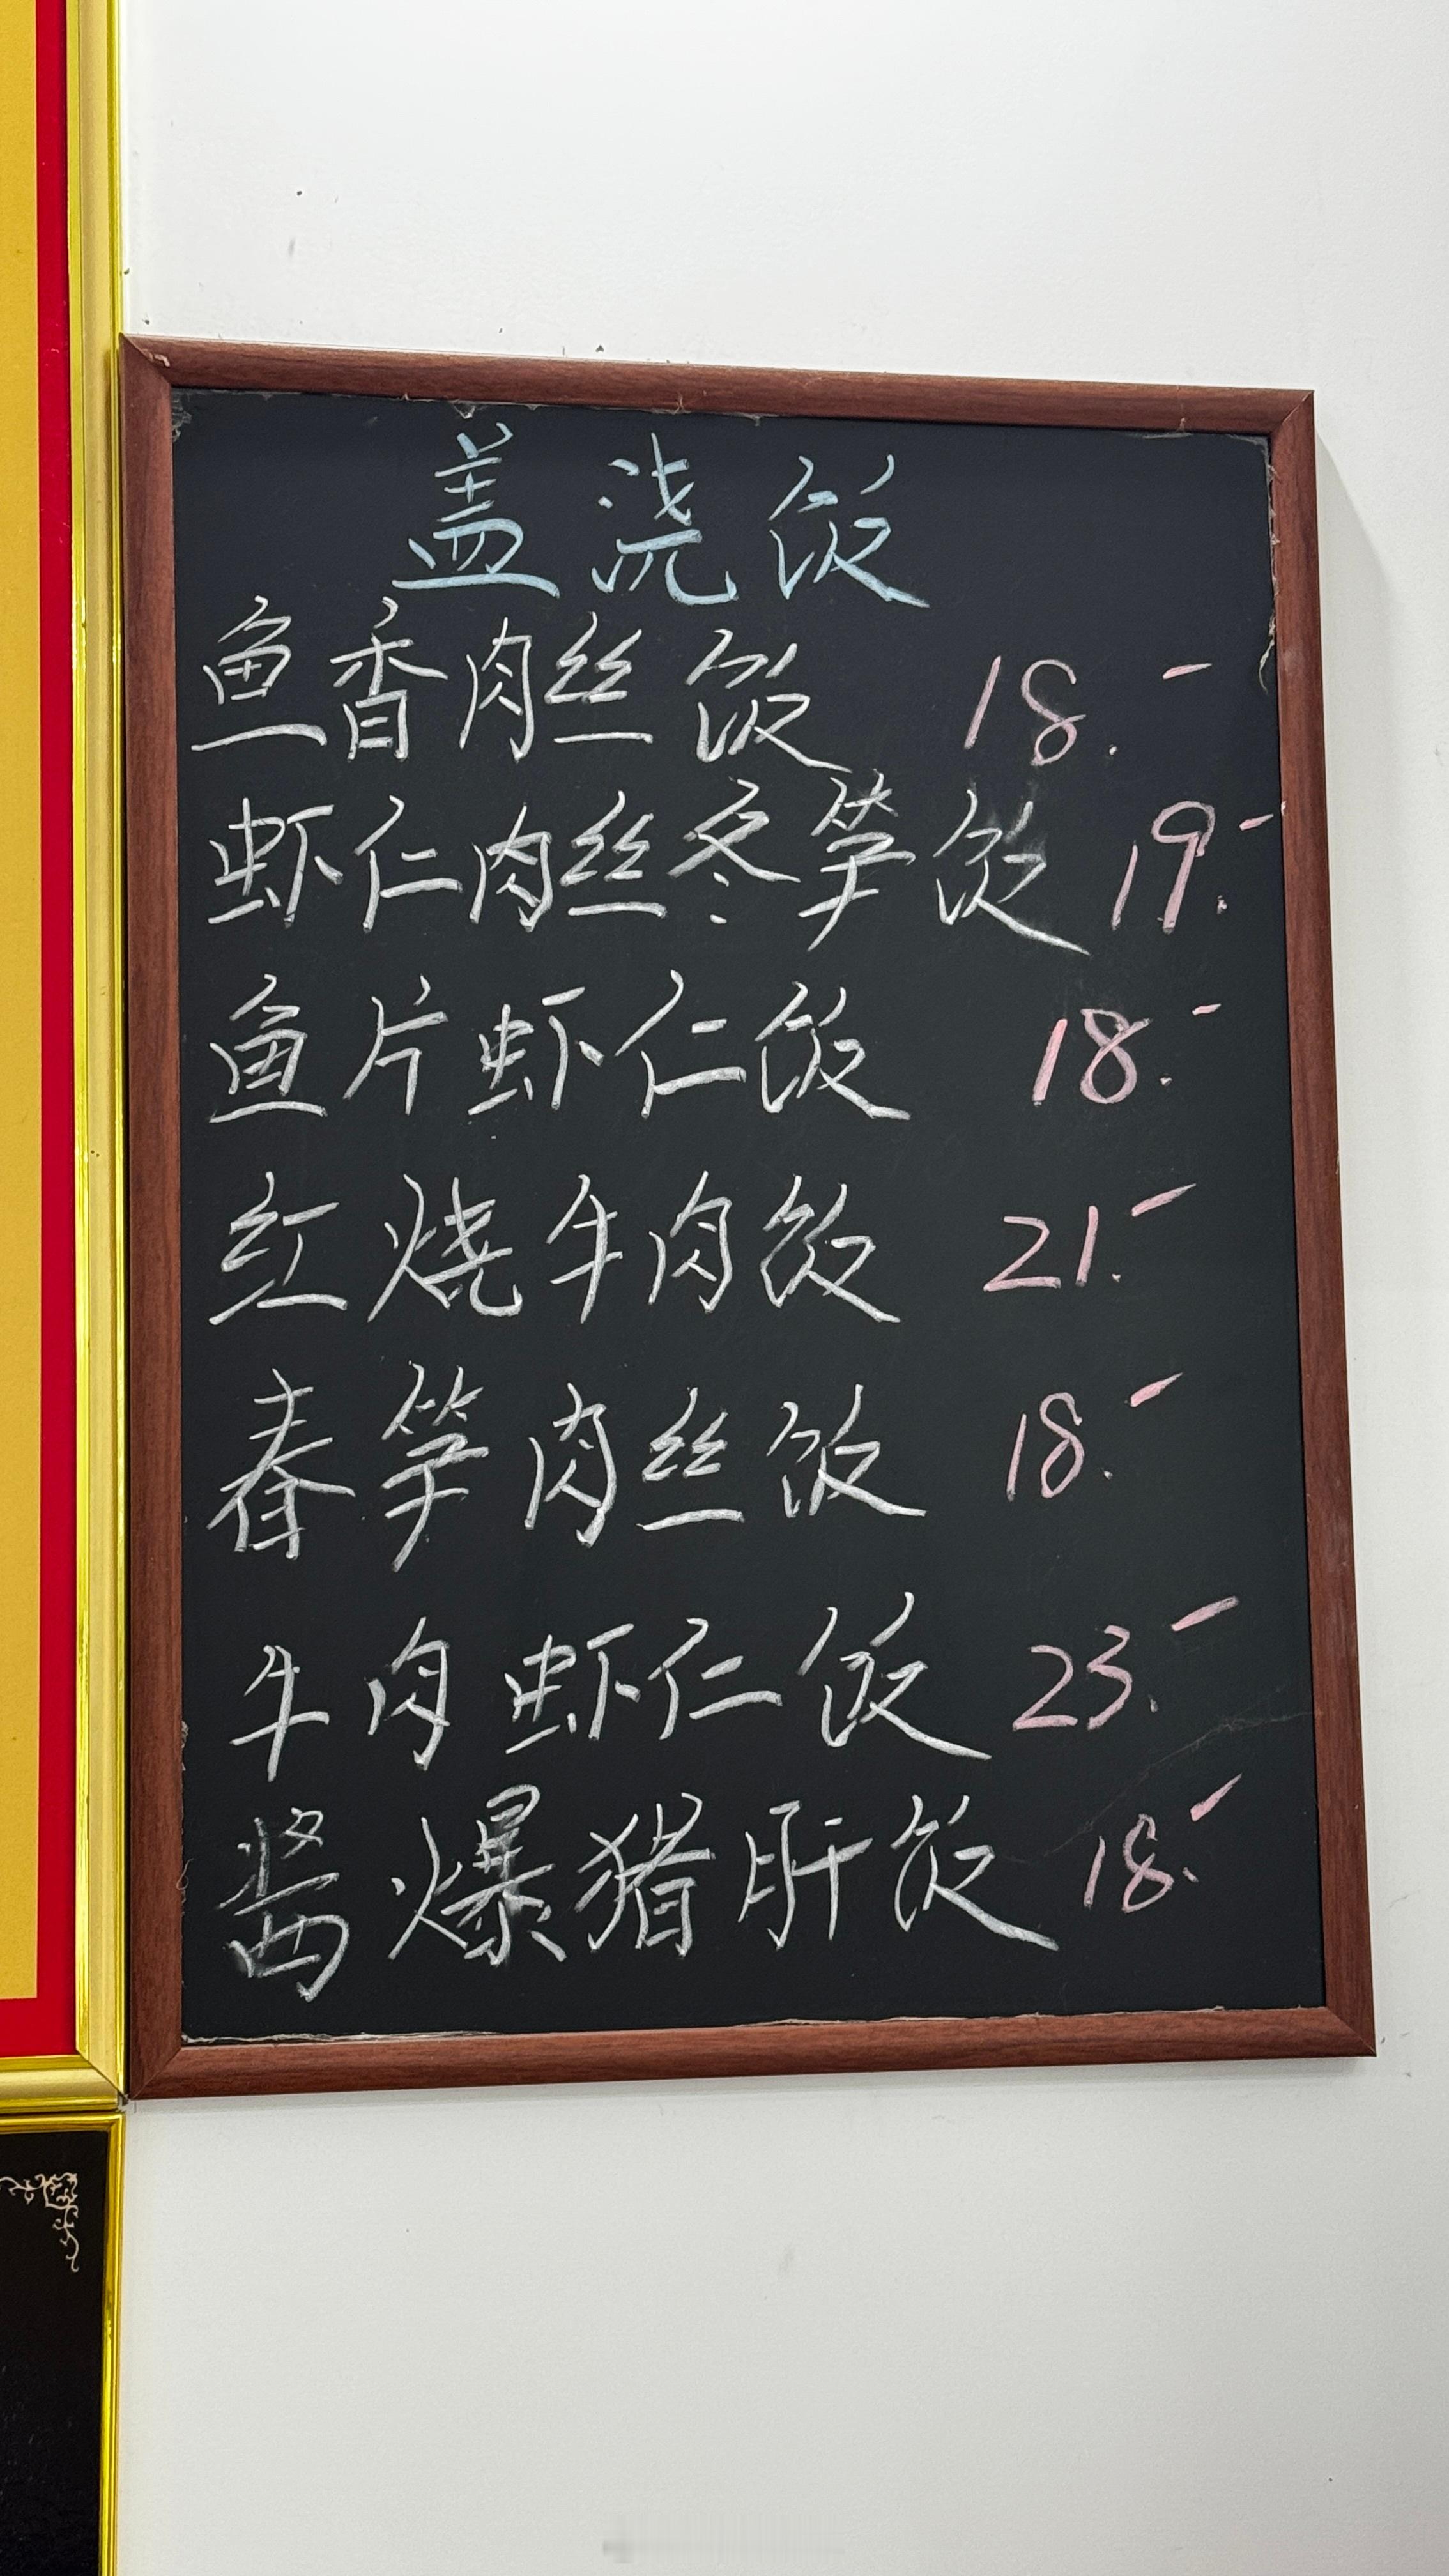 盖浇饭
鱼香肉丝饭 18.-
虾仁肉丝冬笋饭 19.-
鱼片虾仁饭 18.-
红烧牛肉饭 21.-
春笋肉丝饭 18.-
牛肉虾仁饭 23.-
酱爆猪肝饭 18.-